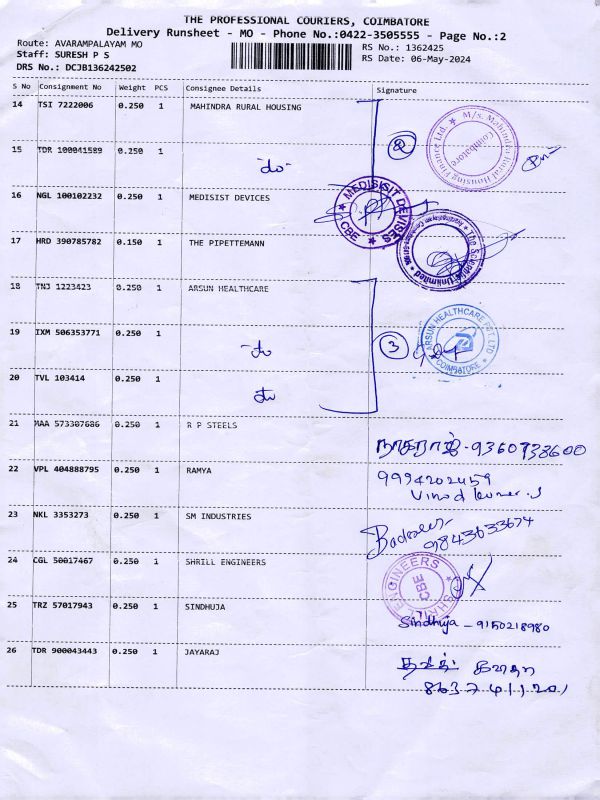 THE PROFESSIONAL COURIERS, COIMBATORE
Delivery Runsheet - MO - Phone No.:0422-3505555 - Page No.:2
Route: AVARAMPALAYAM MO
RS No.: 1362425
Staff: SURESH P S
RS Date: 06-May-2024
DRS No.: DCJB136242502
S No Consignment No Weight PCS Consignee Details Signature
14 TSI 7222006 0.250 1 MAHINDRA RURAL HOUSING
M/s. Mahindra Rural Housing Finance Ltd. ★ Coimbatore
15 TDR 100041589 0.250 1 -do-
16 NGL 100102232 0.250 1 MEDISIST DEVICES
★ MEDISIST DEVISES ★ CBE
17 HRD 390785782 0.150 1 THE PIPETTEMANN
18 TNJ 1223423 0.250 1 ARSUN HEALTHCARE
ARSUN HEALTHCARE PVT LTD
★ COIMBATORE ★
19 IXM 506353771 0.250 1 -do
3
20 TVL 103414 0.250 1 do
21 MAA 573307686 0.250 1 R P STEELS
நாகராஜ் - 9360738600
22 VPL 404888795 0.250 1 RAMYA
9994202459
Vinod kumar.s
23 NKL 3353273 0.250 1 SM INDUSTRIES
9843633674
24 CGL 50017467 0.250 1 SHRILL ENGINEERS
ENGINEERS
CBE
25 TRZ 57017943 0.250 1 SINDHUJA
Sindhuja - 9150218980
26 TDR 900043443 0.250 1 JAYARAJ
8637411201